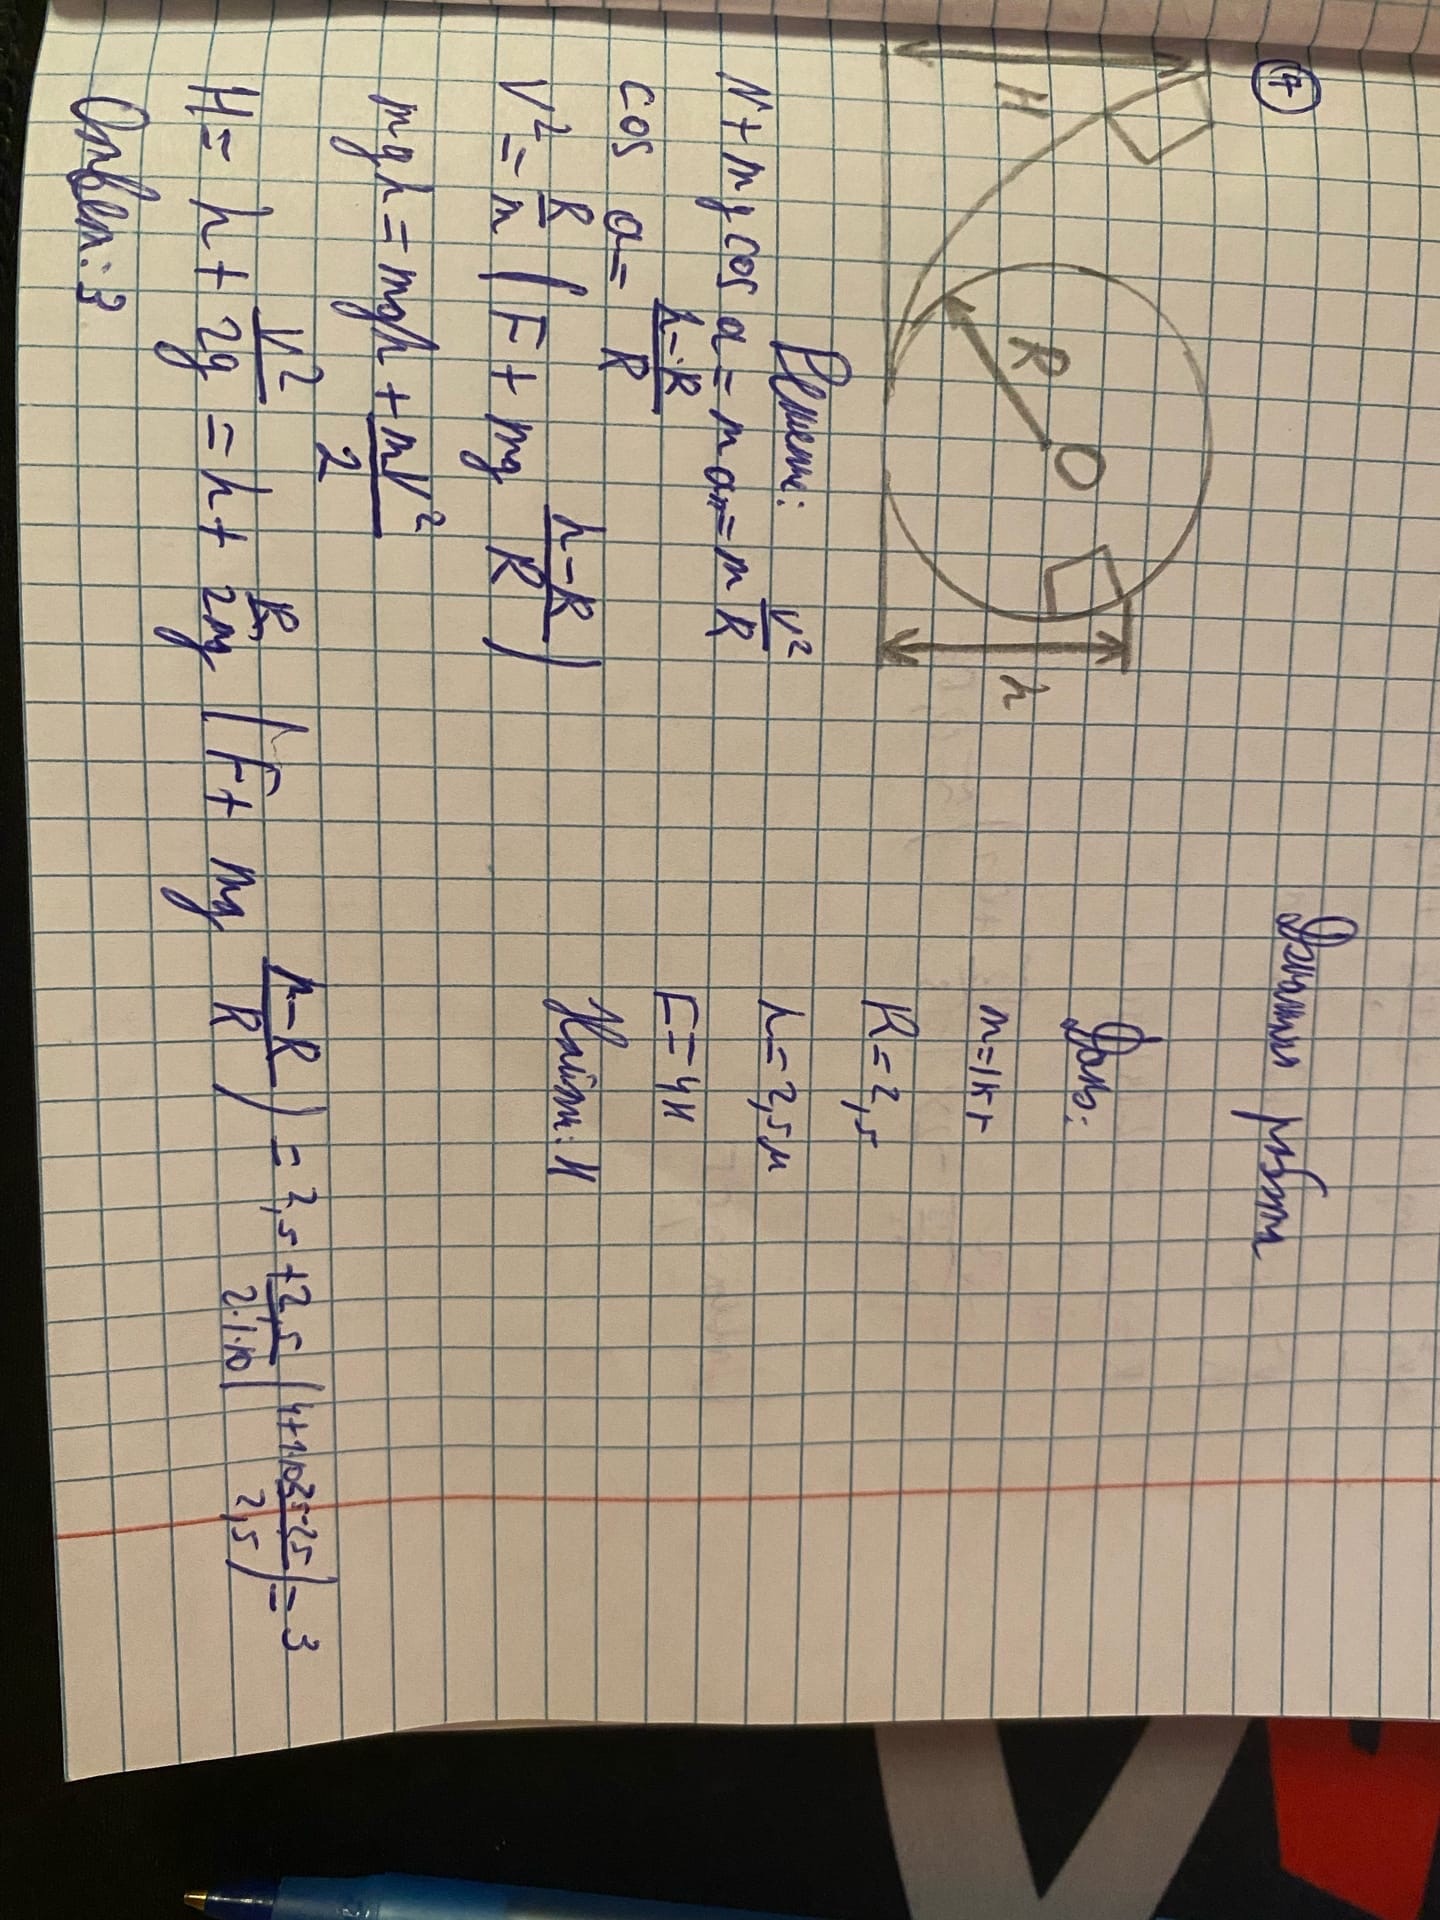 Домашняя работа
17
H
R
O
h
Дано:
m=1кг
R=2,5
h=2,5м
F=4Н
Найти: H
Решение:
N+mg cos a = m aₙ = m V²/R
cos a = h-R/R
V² = R/m (F + mg h-R/R)
mgh = mgh + mV²/2
H = h + V²/2g = h + R/2mg (F + mg h-R/R) = 2,5 + 2,5/2·1·10 (4+1·10 2,5-2,5/2,5) = 3
Ответ: 3